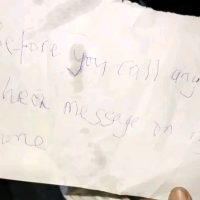 efore you call any
heck message on m
one